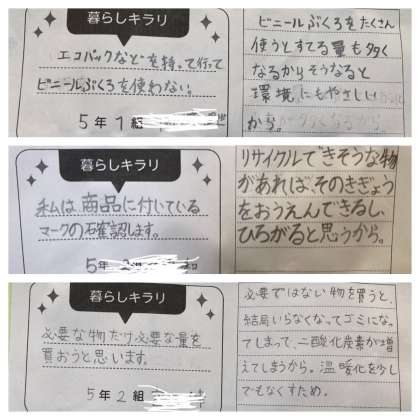 暮らしキラリ
エコバックなどを持って行って
ビニールぶくろを使わない。
5年1組
ビニールぶくろをたくさん
使うとすてる量も多く
なるからそうなると
環境にもやさしい
から。
暮らしキラリ
私は商品に付いている
マークの確認します。
5年
リサイクルできそうな物
があれば、そのきぎょう
をおうえんできるし、
ひろがると思うから。
暮らしキラリ
必要な物だけ必要な量を
買おうと思います。
5年2組
必要ではない物を買うと、
結局いらなくなってゴミにな。
てしまって、二酸化炭素が増
えてしまうから。温暖化を少し
でもなくすため。